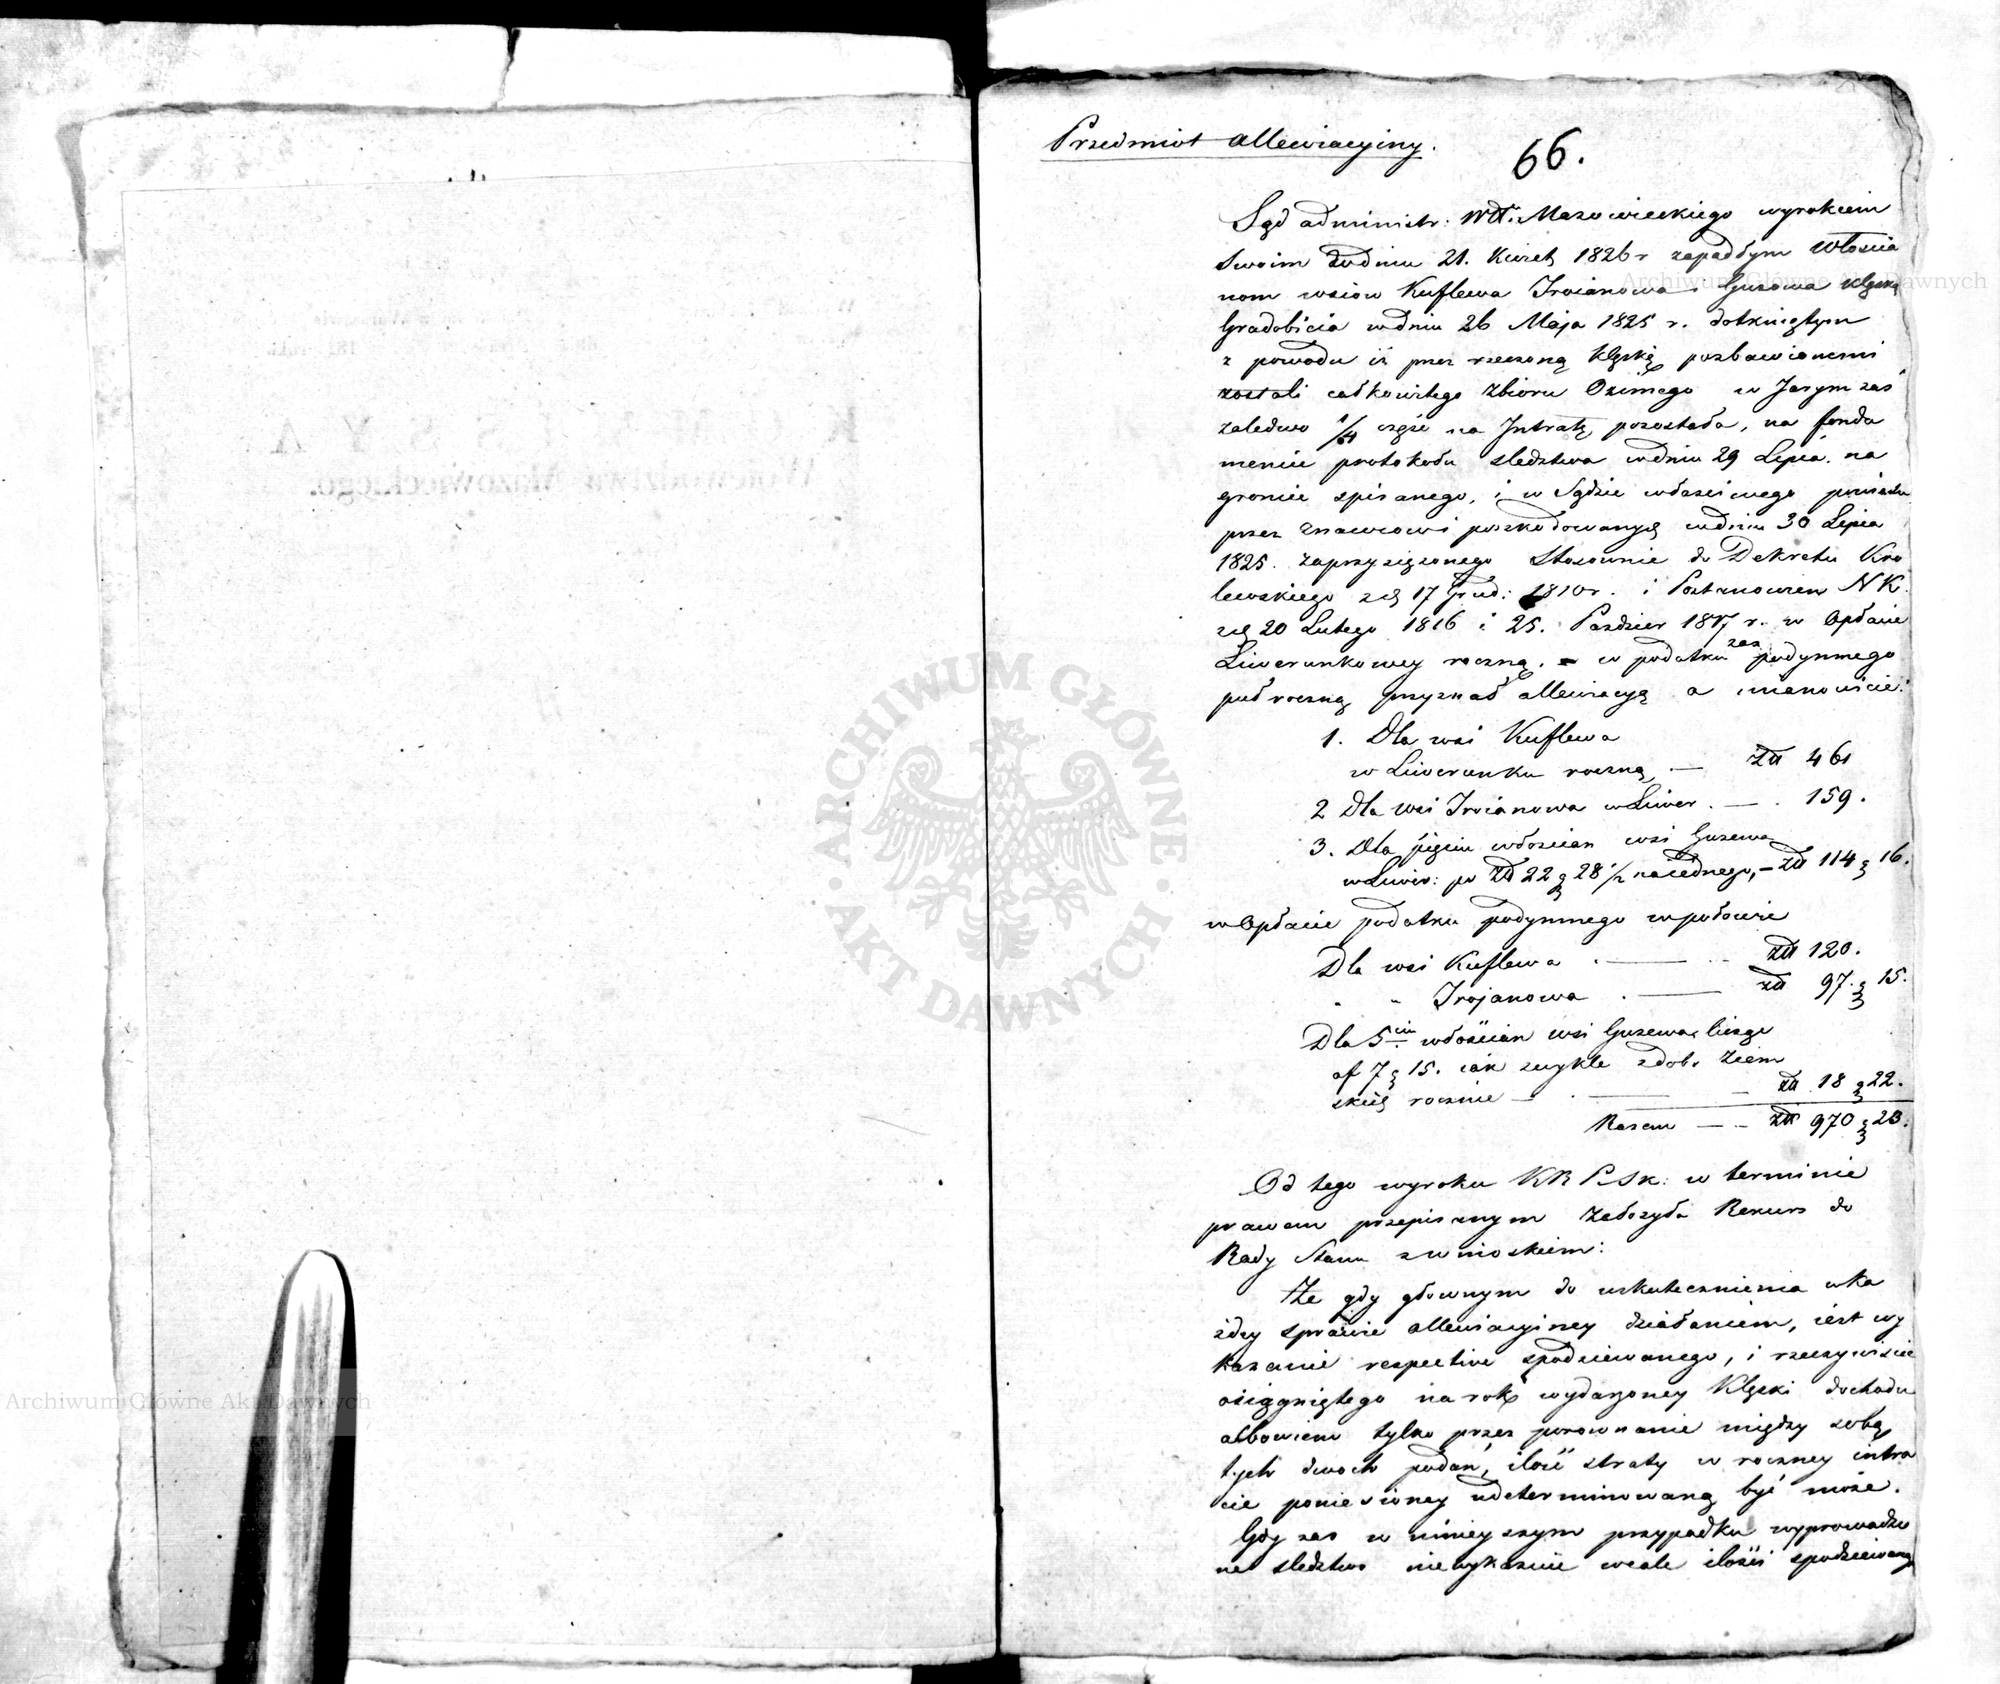 Przedmiot allewiacyiny.
66.
Sąd administr: Wd. Mazowieckiego wyrokiem
swoim w dniu 21. Kwiet 1826 r zapadłym Włościa
nom wsiow Kuflewa Troianowa i Guzewa klęską
Gradobicia w dniu 26 Maja 1825 r. dotkniętym
z powodu iż przez rzeczoną klęskę pozbawionemi
zostali całkowitego zbioru Ozimego w Jarym zaś
zaledwo 1/64 częśc na Intratę pozostała, na fonda
mencie protokołu sledztwa w dniu 29 Lipca. na
gruncie spisanego, i w Sądzie właściwego powiatu
przez znawcow i poszkodowanych w dniu 30 Lipca
1825. zaprzysiężonego stosownie do Dekretu Kro
lewskiego z d 17 Grud: 1810 r. i Postanowien N K.
z d 20 Lutego 1816 i 25. Pazdzier 1817 r. w Opłacie
Liwerunkowey roczną. w podatku zas podymnego
puł roczną przyznał allewiacyą a mianowicie:
1. Dla wsi Kuflewa
w Liwerunku roczną — Zł 461
2 Dla wsi Troianowa w Liwer. — . 159.
3. Dla pięciu włościan wsi Guzewa
w Liwer: po Zł 22 g 28 1/2 na iednego, — Zł 114 g 16.
w Opłacie podatku podymnego w połowie
Dla wsi Kuflewa . — Zł 120.
" " Trojanowa . — Zł 97. g 15.
Dla 5ciu włościan wsi Guzewa licząc
af 7 g 15. iak zwykle z dobr Ziem
skich rocznie — Zł 18 g 22.
Razem — Zł 970 g 23.
Od tego wyroku K R P. Sk: w terminie
prawem przepisanym założyła Rekurs do
Rady Stanu z wnioskiem:
Że gdy głownym do uskutecznienia w ka
żdey sprawie allewiacyiney działaniem, iest wy
kazanie respective spodziewanego, i rzeczywiscie
osiągniętego na rok wydarzoney Klęski dochodu
albowiem tylko przez porownanie między sobą
tych dwoch podań, ilość straty w roczney intra
cie poniesioney udeterminowaną być może.
Gdy zas w ninieyszym przypadku wyprowadzo
ne sledztwo niewykazuie wcale ilości spodziewaneg
Archiwum Główne Akt Dawnych
Archiwum Główne Akt Dawnych
ARCHIWUM GŁÓWNE
AKT DAWNYCH
Woiewodztwa Mazowieckiego.